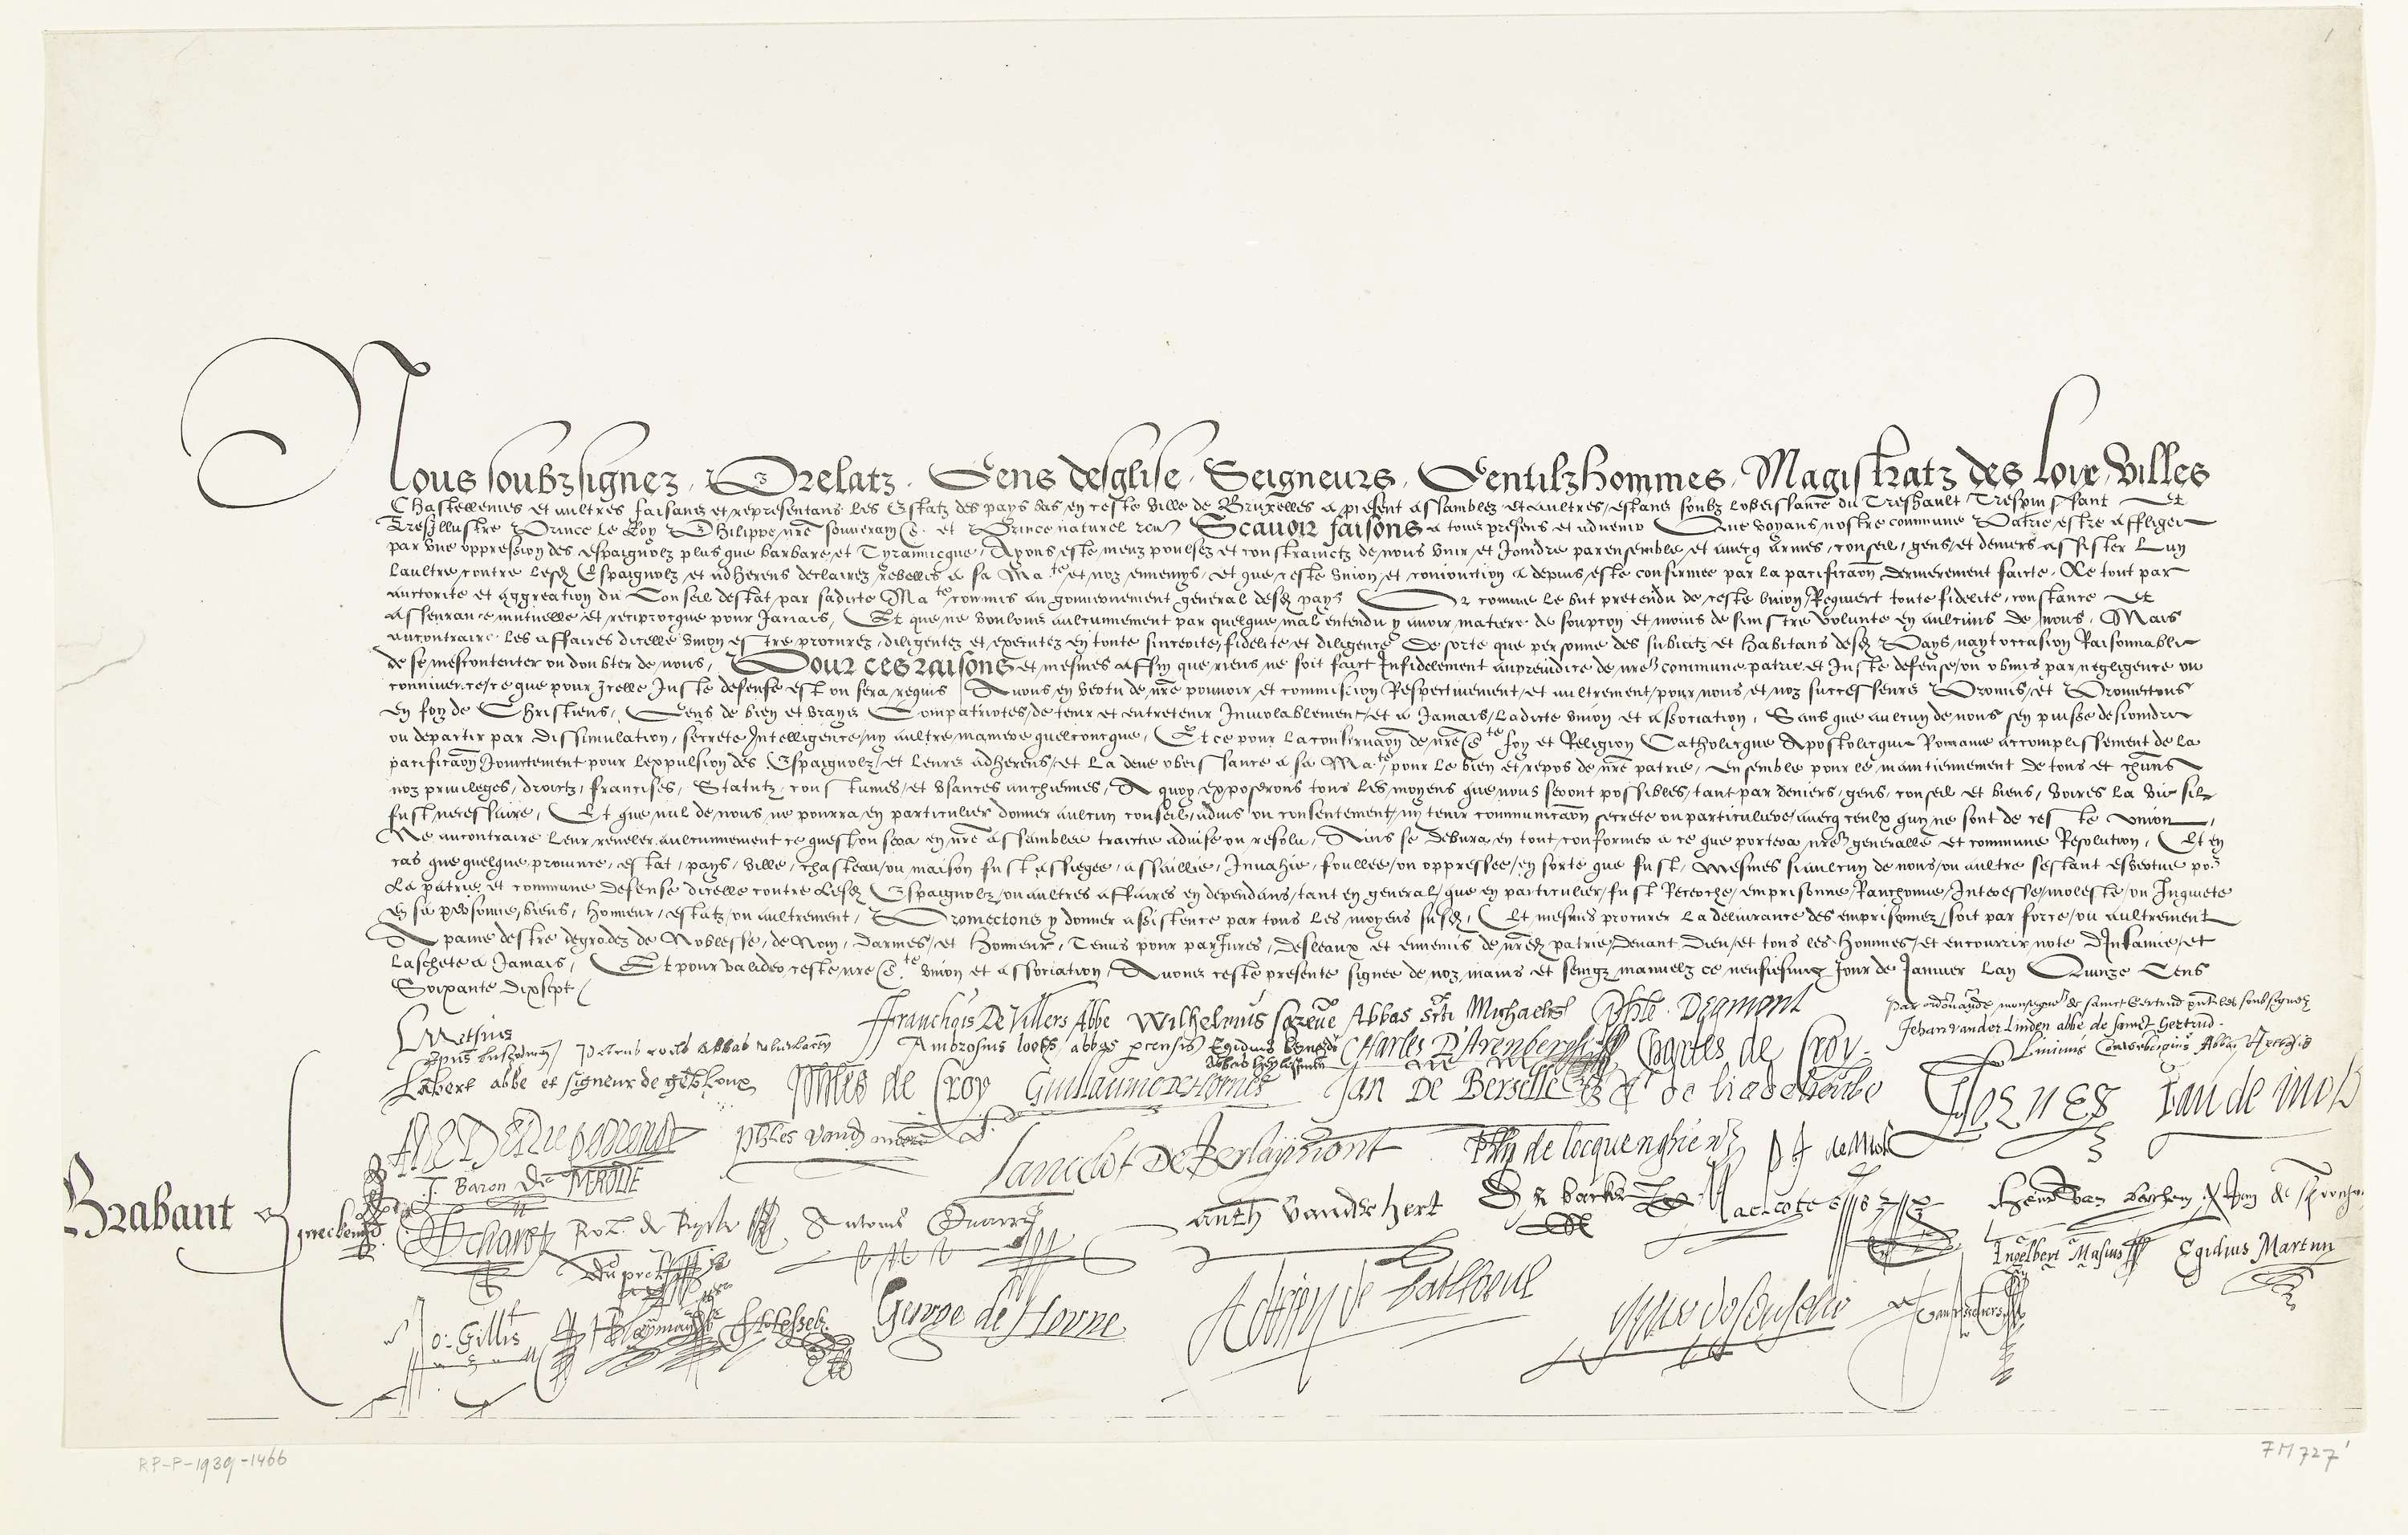 Nous soubzsignez, Prelatz, Gens desglise, Seigneurs, Gentilzhommes, Magistratz des loix, villes
Chastellenies et aultres faisans et representans les Estatz des pays bas, en ceste ville de Bruxelles a present assamblez et aultres, estans soubz lobeissance du Treshault Trespuissant Et
Tresillustre Prince le Roy Philippe, nre souverain Sr. et Prince naturel Scauoir faisons a tous presens et aduenir Que voyans nostre commune Patrie estre affligee
par vne oppression des espaignolz plus que barbare et Tyrannicque, Ayons este meuz poulsez et constrainctz de nous vnir et Joindre par ensemble et auecq armes, conseil, gens et deniers assister Lun
laultre contre lesdz Espaignolz et adherens declairez rebelles a sa Ma.te et noz ennemys, et que ceste vnion et conionction a depuis este confirmee par la pacificaon dernierement faicte, Le tout par
auctorite et aggreation du Conseil destat par sadicte Ma.te commis au gouuernement general desdz pays Or comme le but pretendu de ceste vnion Requiert toute fidelite, constance et
Asseurance mutuelle et reciprocque pour Jamais, Et que ne voulons aulcunnement par quelque mal entendu y auoir matiere de soupcon et moins de sinistre volunte en aulcuns de nous, Mais
aucontraire les affaires dicelle vnion estre procurez, diligentez et executez en toute sincerite, fidelite et diligence De sorte que personne des subiectz et habitans desdz Pays nayt occasion Raisonnable
de se mescontenter ou doubter de nous, Pour ces raisons et mesmes affin que riens ne soit faict Infidelement au preiudice de nre commune patrie et Juste defense, ou obmis par negligence ou
conniuence, ce que pour Icelle Juste defense est ou sera requis Auons en vertu de nre pouuoir et commission Respectiuement, et aultrement, pour nous et noz successeurs Promis et Promectons
en foy de Christiens, Gens de bien et vrays Compatriotes, de tenir et entretenir Inuiolablement et a Jamais, Ladicte vnion et association, Sans que aulcun de nous sen puisse desioindre
ou departir par dissimulation, secrete Intelligence, ny aultre maniere quelconcque, Et ce pour la conseruaon de nre S.te foy et Religion Catholicque Apostolicque Romaine accomplissement de la
pacificaon Joinctement pour lexpulsion des Espaignolz, et leurs adherens, et la deue obeissance a sa Ma.te pour le bien et repos de nre patrie, ensemble pour le maintiennement de tous et chuns
noz priuileges, droictz, francises, Statutz, coustumes, et vsances anchiennes, A quoy exposerons tous les moyens que nous seront possibles, tant par deniers, gens, conseil et biens, voires la vie sil
fust necessaire, Et que nul de nous ne pourra en particulier donner aulcun conseil, aduis ou consentement, ny tenir communicaon secrete ou particuliere auecq ceulx quy ne sont de ceste vnion,
Ne aucontraire leur reueler aulcunnement ce quest ou sera en nre assamblee traictie aduise ou resolu, Ains se debura en tout conformer a ce que portera nre generalle et commune Resolution, Et en
cas que quelque prouince, estat, pays, ville, chasteau, ou maison fust assiegee, assaillie, Inuahie, foullee, ou oppressee, en sorte que fust, Mesmes si aulcun de nous, ou aultre sestant esvertue por
La patrie et commune defense dicelle contre lesdz Espaignolz, ou aultres affaires en dependans, tant en general, que en particulier, fust Recerche, emprisonne, Ranchonne, Interesse, moleste, ou Inquiete
en sa personne, biens, honneur, estatz, ou aultrement, Promectons y donner assistence par tous les moyens susdz, Et mesmes procurer la deliurance des emprisonnez, soit par force, ou aultrement
A paine destre degradez de Noblesse, de Nom, darmes, et honneur, Tenus pour parjures, desleaux et ennemis de nredz patrie, deuant Dieu, et tous les hommes, et encourrir note dInfamie, et
laschete a Jamais, Et pour valider ceste nre S.te vnion et association, Auons ceste presente signee de noz mains et seingz manuelz ce neufiesme Jour de Januier Lan Quinze Cens
Soixante Dixsept
Metsius
Franchois De Villers Abbe Wilhelmus Abbas scti Michaelis Phle. Degmont
Jehan vander linden abbe de sainct Gertrud.
Ambrosius loots abbas parensis Charles D'Arenberghe Charles de Croy.
Labert abbe et signeur de
Philes de Croy Guillaume de Hornes Jan De Berselle
Jan de Mol
Lancelot De Berlaymont de Locquenghien
J. Baron De MERODE
Brabant
Antoine Quarre
Anth vander hert
Du pret
Ingelbert Masius Egidius Martini
Jo: Gillis
George de Horne
RP-P-1939-1466
FM 727'